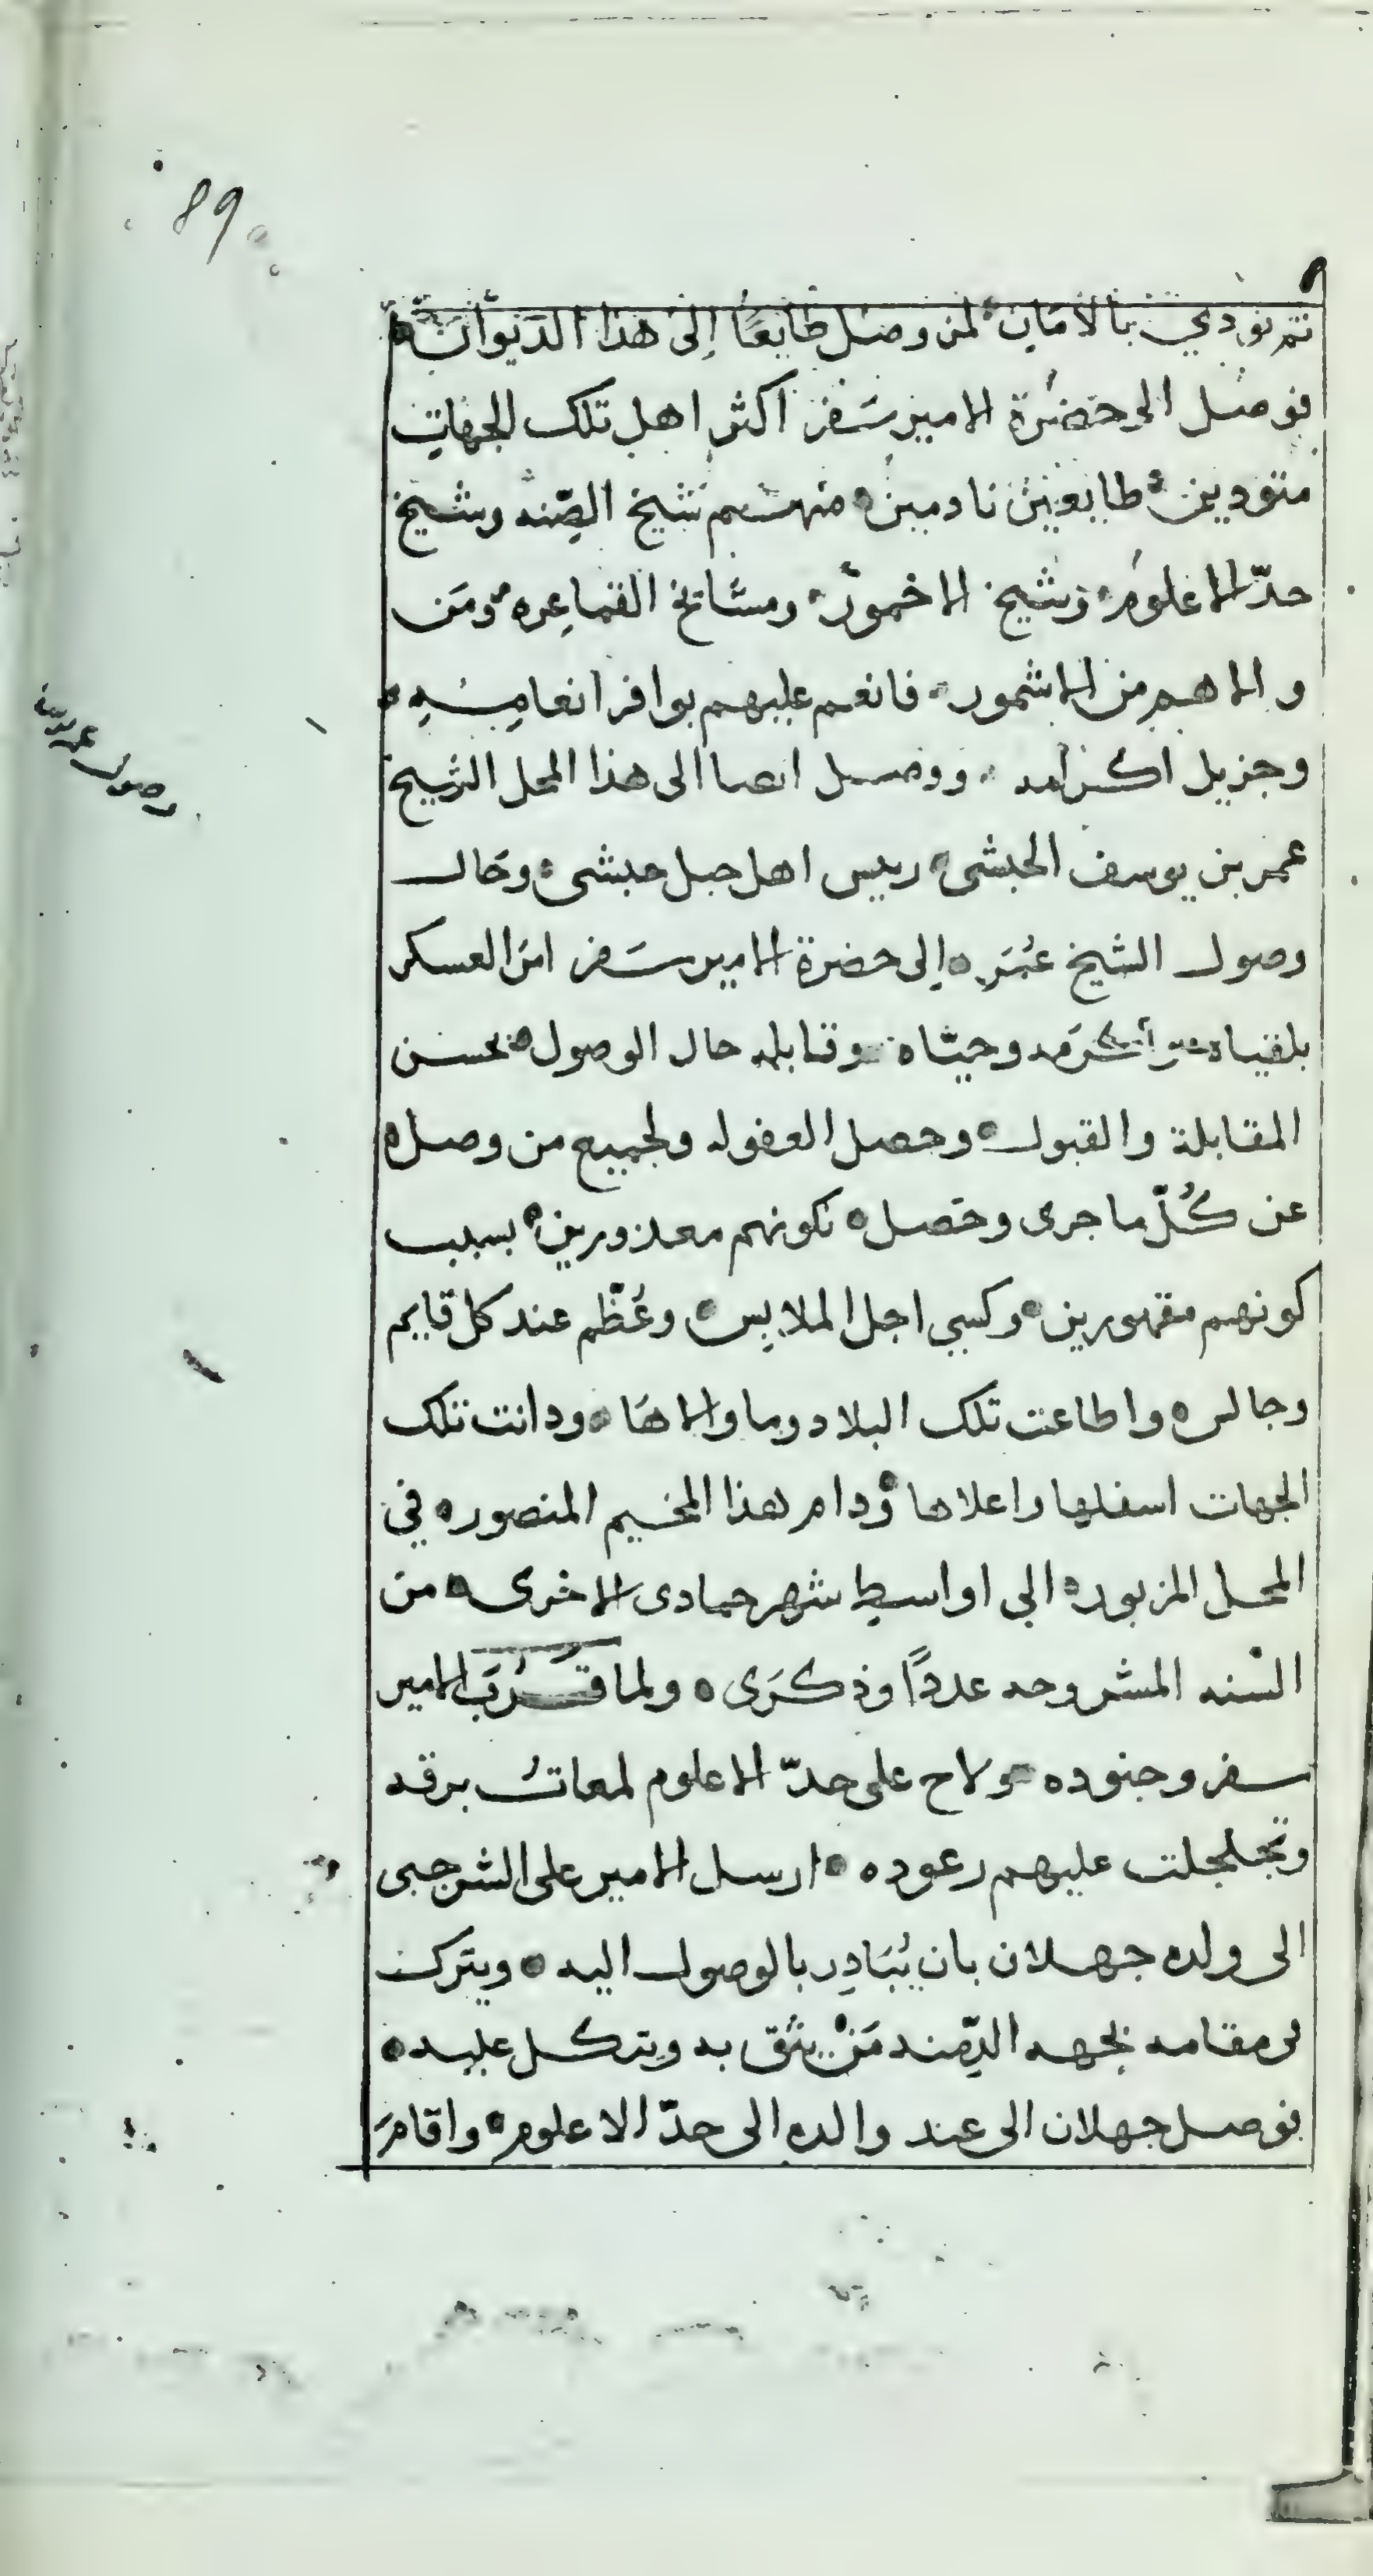 89
ثم نودي بالامان لمن وصل طايعًا إلى هذا الديوان
فوصل الى حضرة الامير سَفر اكثر اهل تلك الجهات
متوددين طايعين نادمين منهم شيخ الصِّنه وشيخ
حدّ الاعلوم وشيخ الاخمور ومشايخ القماعِره ومَن
والاهم من الاشمور فانعم عليهم بوافر انعامِه
وجزيل اكرامه ووصل ايضا الى هذا المحل الشيخ
عمر بن يوسف الحبشي رييس اهل جبل حبشي وحال
وصول الشيخ عُمَر إلى حضرة الامير سَفر امَر العسكر
بلقياه وأكرَمه وحيّاه وقابله حال الوصول بحسن
المقابلة والقبول وحصل العفو له ولجميع من وصل
عن كُلّ ما جرى وحَصل لكونهم معذورين بسبب
كونهم مقهورين وكسي اجل الملابِس وعُظّم عند كل قايم
وجالس واطاعت تلك البلاد وما والاهَا ودانت تلك
الجهات اسفلها واعلاها وَدام هذا المخيم المنصور في
المحل المزبور الى اواسط شهر جمادى الاخرى من
السّنه المشروحه عددًا وذكرَى ولما قَرُبَ الامير
سفر وجنوده ولاح على حدّ الاعلوم لمعاتُ برقه
وتجلجلت عليهم رعوده ارسل الامير على الشرجبى
الى ولده جهلان بان يُبَادِر بالوصول اليه ويترك
في مقامه بجهه الدِّمنه مَنْ يثق به ويتكل عليه
فوصل جهلان الى عند والده الى حدّ الاعلوم واقامَ
وصول عمر بن